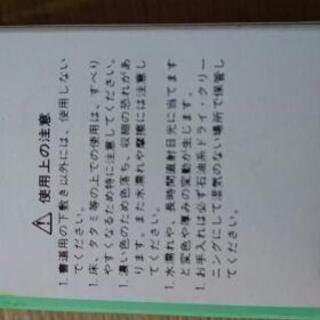 ⚠ 使用上の注意
1. 書道用の下敷き以外には、使用しない
でください。
1. 床、タタミ等の上での使用は、すべり
やすくなるため特に注意してください。
1. 濃い色のため色落ち、収縮の恐れがあ
ります。また水濡れや摩擦には注意し
てください。
1. 水濡れや、長時間直射日光に当てます
と変色や厚みの変動が生じます。
1. お手入れは必ず石油系ドライ・クリー
ニングにして湿気のない場所で保管し
てください。